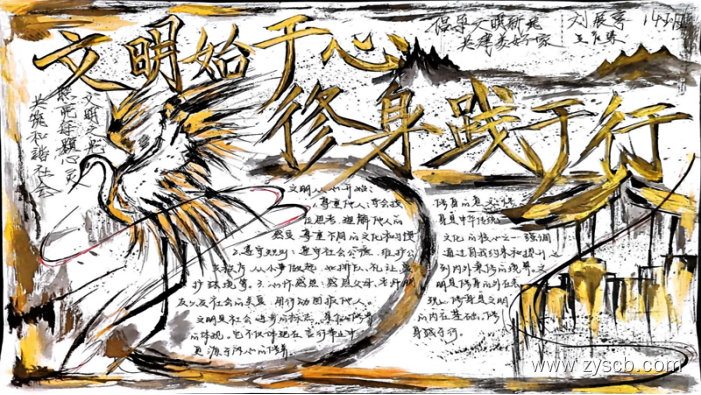 文明始于心
修身践于行
倡导文明新风
共建美好家
文明之光
照亮每颗心灵
共建和谐社会
文明从心开始：
1.尊重他人：学会换
位思考，理解他人的
感受，尊重不同的文化和习惯
2.遵守规则：遵守社会公德，维护公
共秩序，从小事做起，如排队、礼让、爱
护环境等。3.心怀感恩：感恩父母、老师、朋
友以及社会的关爱，用行动回报他人。
文明是社会进步的标志，是个人修养
的体现，它不仅体现在言行举止中
更源于内心的修养
修身的意义：修
身是中华传统
文化的核心之一，强调
通过自我约束和提升
到内外兼修的境界。文
明是修身的外在表
现，修身是文明
的内在基础，修
身践于行。
www.zyscb.com